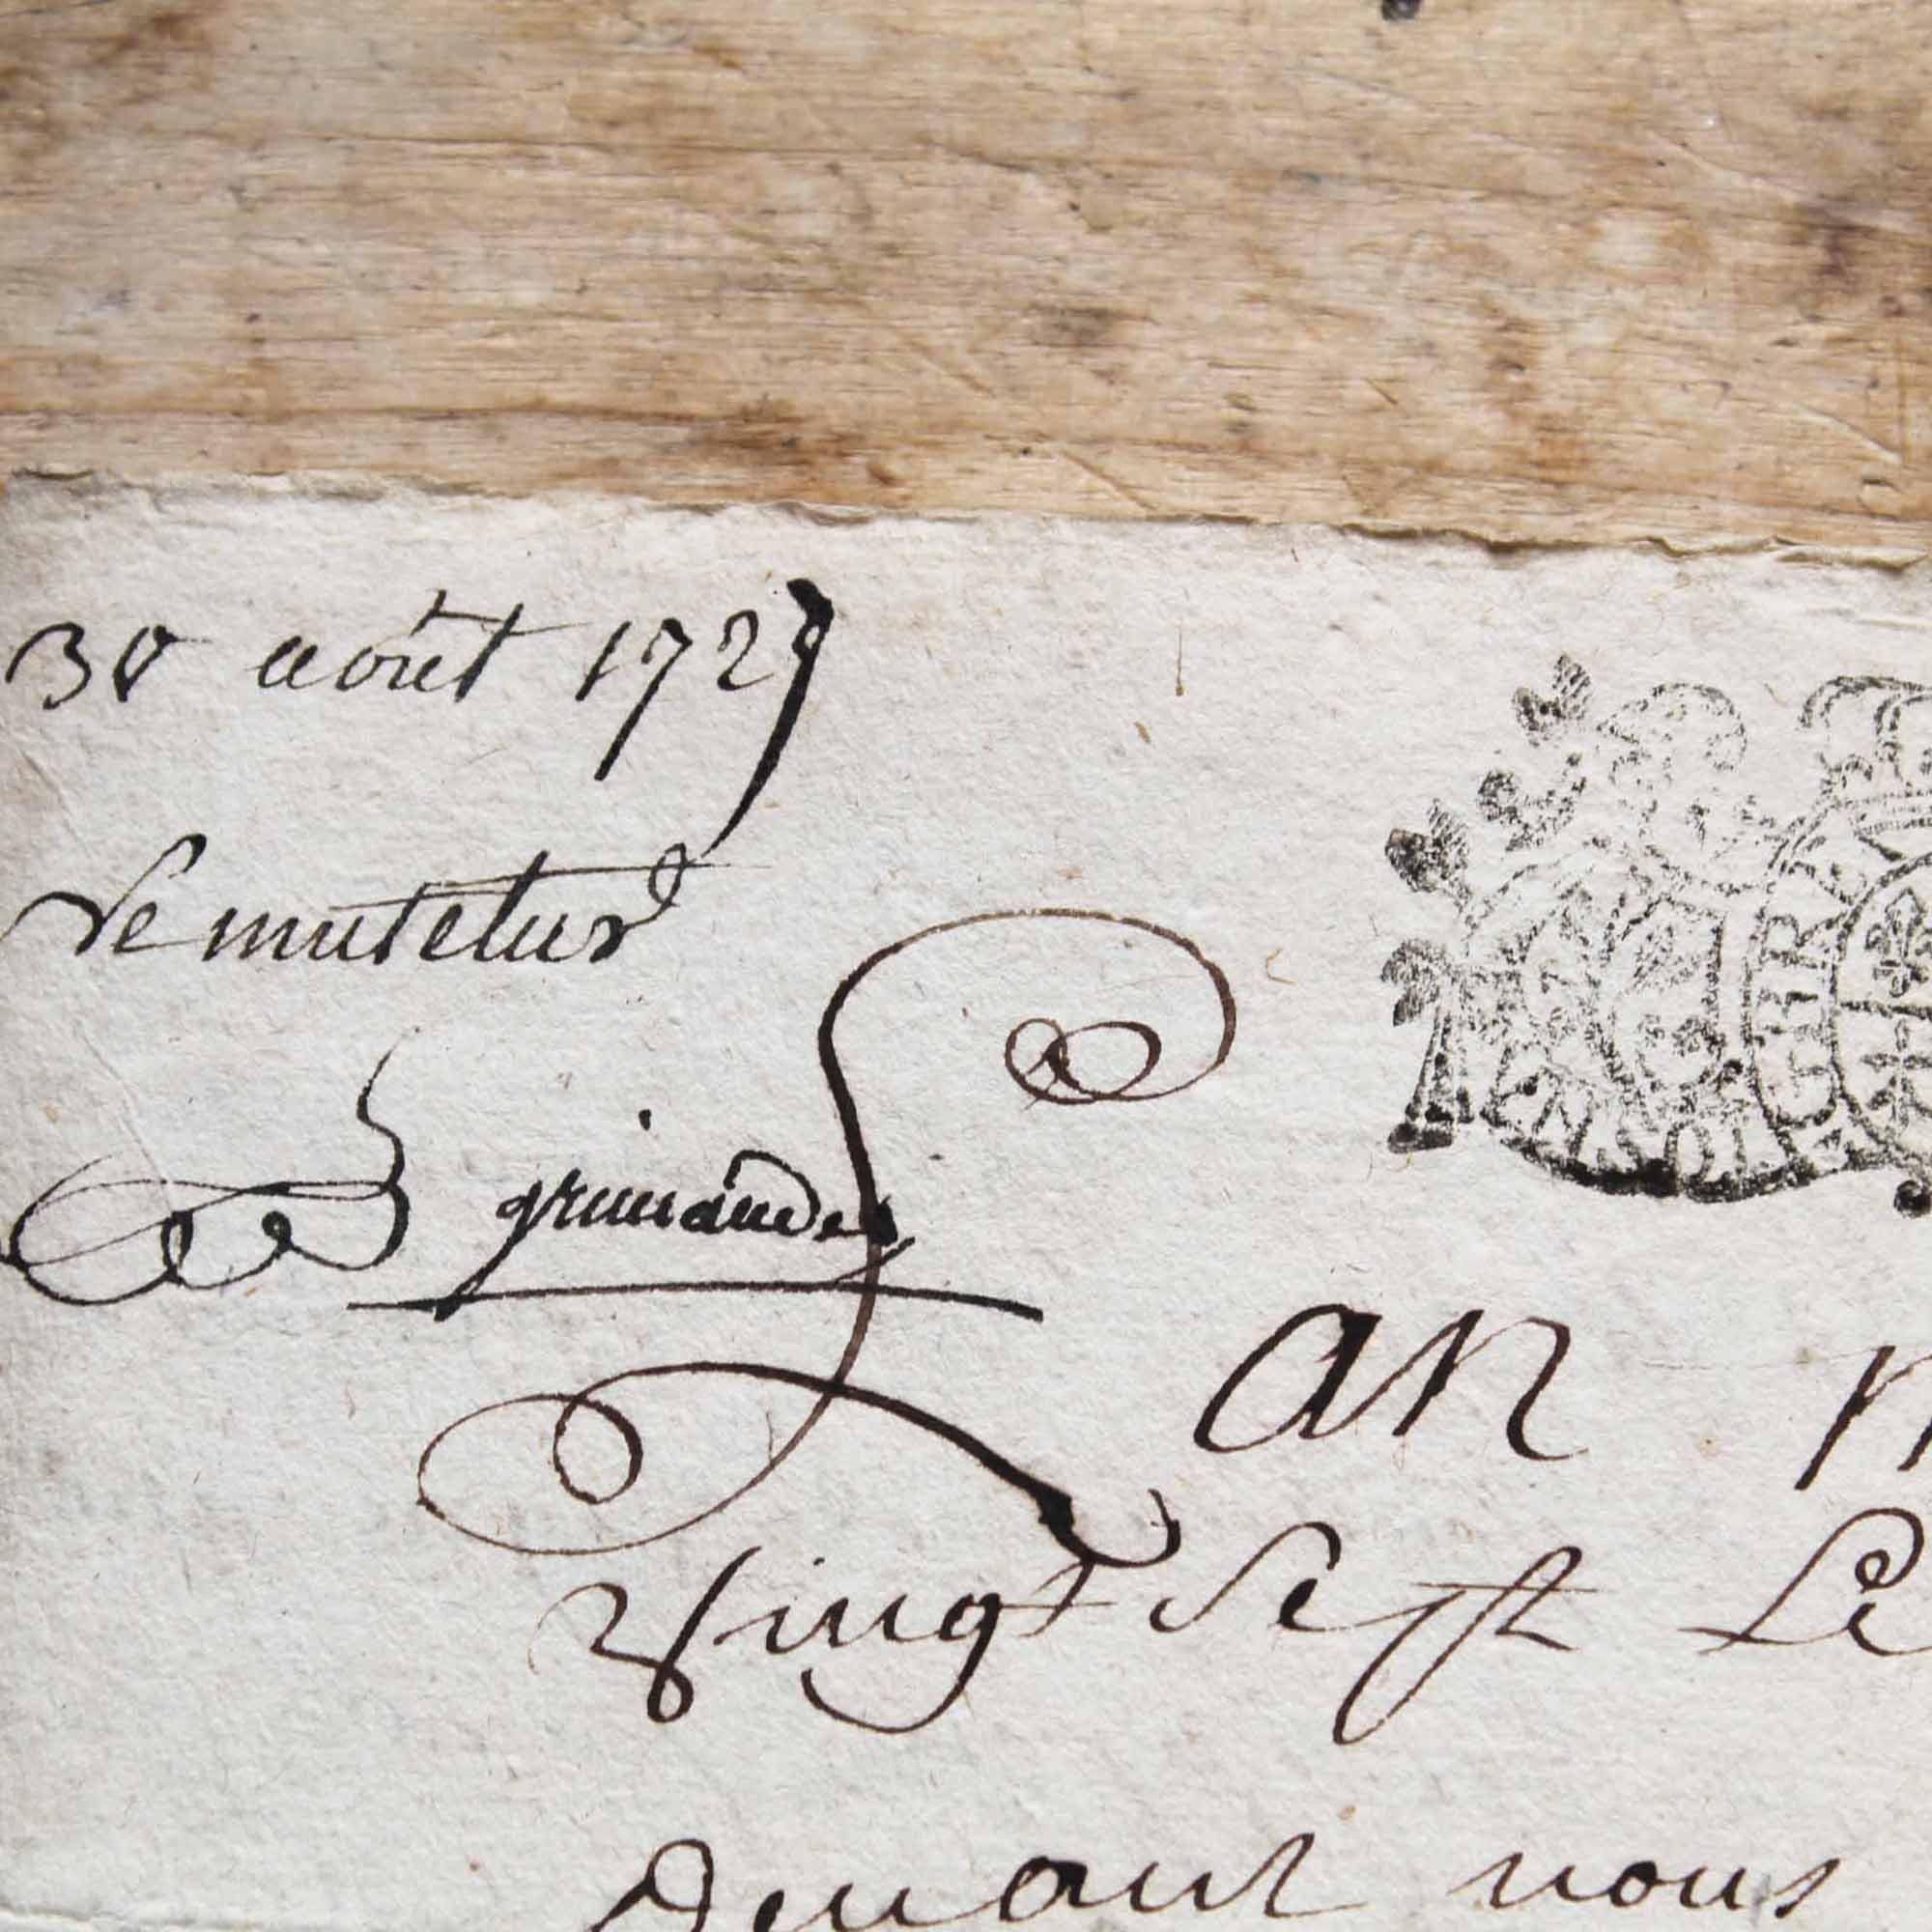 30 aoút 1727
Ne mutetur
grimaudet
L an m
Vingt Sept Le
Devant nous